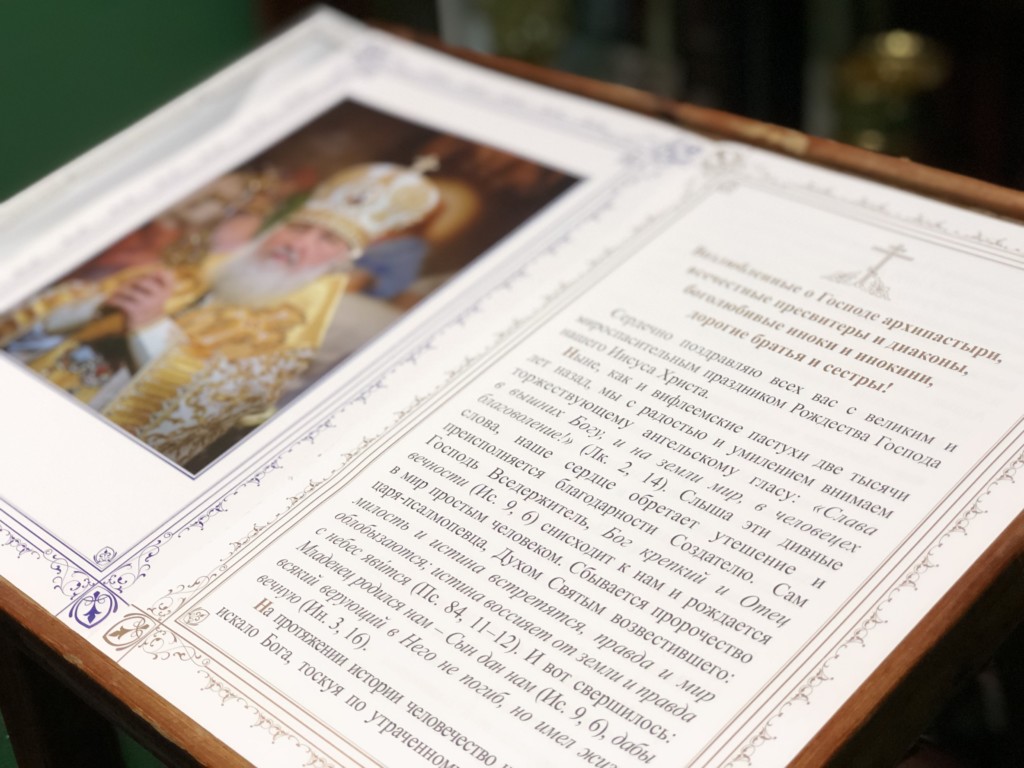 Возлюбленные о Господе архипастыри,
всечестные пресвитеры и диаконы,
боголюбивые иноки и инокини,
дорогие братья и сестры!
Сердечно поздравляю всех вас с великим и
мироспасительным праздником Рождества Господа
нашего Иисуса Христа.
Ныне, как и вифлеемские пастухи две тысячи
лет назад, мы с радостью и умилением внимаем
торжествующему ангельскому гласу: «Слава
в вышних Богу, и на земли мир, в человецех
благоволение!» (Лк. 2, 14). Слыша эти дивные
слова, наше сердце обретает утешение и
преисполняется благодарности Создателю. Сам
Господь Вседержитель, Бог крепкий и Отец
вечности (Ис. 9, 6) снисходит к нам и рождается
в мир простым человеком. Сбывается пророчество
царя-псалмопевца, Духом Святым возвестившего:
милость и истина встретятся, правда и мир
облобызаются; истина воссияет от земли и правда
с небес явится (Пс. 84, 11–12). И вот свершилось:
Младенец родился нам – Сын дан нам (Ис. 9, 6), дабы
всякий верующий в Него не погиб, но имел
вечную (Ин. 3, 16).
На протяжении истории человечество
искало Бога, тоскуя по утраченному